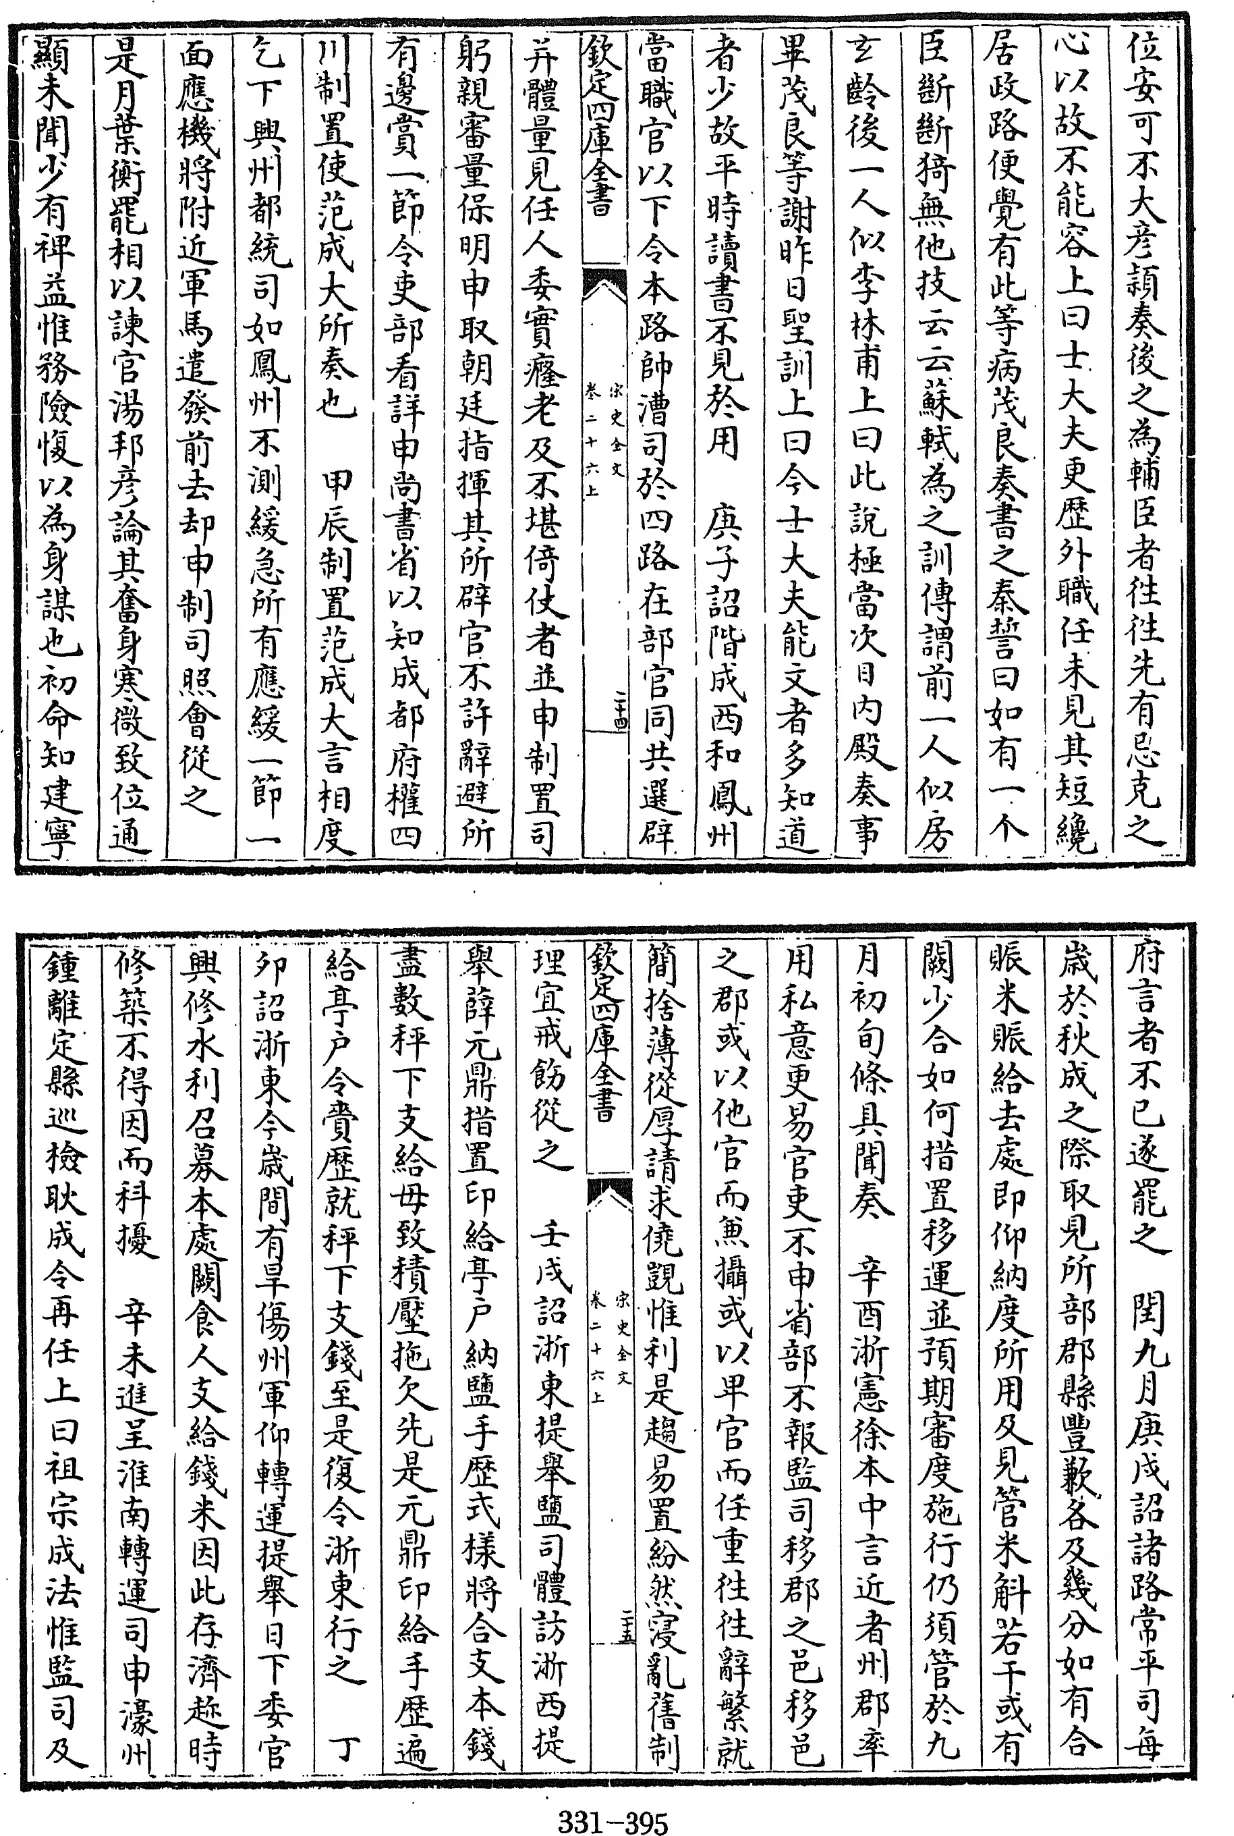 位安可不大彦頴奏後之為輔臣者徃徃先有忌克之
心以故不能容上曰士大夫更歴外職任未見其短纔
居政路便覺有此等病茂良奏書之秦誓曰如有一个
臣斷斷猗無他技云云蘇軾為之訓傳謂前一人似房
玄齡後一人似李林甫上曰此說極當次日内殿奏事
畢茂良等謝昨日聖訓上曰今士大夫能文者多知道
者少故平時讀書不見於用　庚子詔階成西和鳳州
當職官以下令本路帥漕司於四路在部官同共選辟
欽定四庫全書
宋史全文
卷二十六上
二十四
并體量見任人委實癃老及不堪倚仗者並申制置司
躬親審量保明申取朝廷指揮其所辟官不許辭避所
有邊賞一節令吏部看詳申尚書省以知成都府權四
川制置使范成大所奏也　甲辰制置范成大言相度
乞下興州都統司如鳳州不測緩急所有應緩一節一
面應機將附近軍馬遣發前去却申制司照會從之
是月葉衡罷相以諫官湯邦彦論其奮身寒微致位通
顯未聞少有裨益惟務險愎以為身謀也初命知建寧
府言者不已遂罷之　閏九月庚戌詔諸路常平司每
歲於秋成之際取見所部郡縣豐歉各及幾分如有合
賑米賑給去處即仰納度所用及見管米斛若干或有
闕少合如何措置移運並預期審度施行仍須管於九
月初旬條具聞奏　辛酉浙憲徐本中言近者州郡率
用私意更易官吏不申省部不報監司移郡之邑移邑
之郡或以他官而兼攝或以卑官而任重徃徃辭繁就
簡捨薄從厚請求僥覬惟利是趨易置紛然寖亂舊制
欽定四庫全書
宋史全文
卷二十六上
二十五
理宜戒飭從之　壬戌詔浙東提舉鹽司體訪浙西提
舉薛元鼎措置印給亭户納鹽手歴式樣將合支本錢
盡數秤下支給毋致積壓拖欠先是元鼎印給手歴遍
給亭户令賫歴就秤下支錢至是復令浙東行之　丁
夘詔浙東今歲間有旱傷州軍仰轉運提舉日下委官
興修水利召募本處闕食人支給錢米因此存濟趂時
修築不得因而科擾　辛未進呈淮南轉運司申濠州
鍾離定縣巡檢耿成令再任上曰祖宗成法惟監司及
331-395